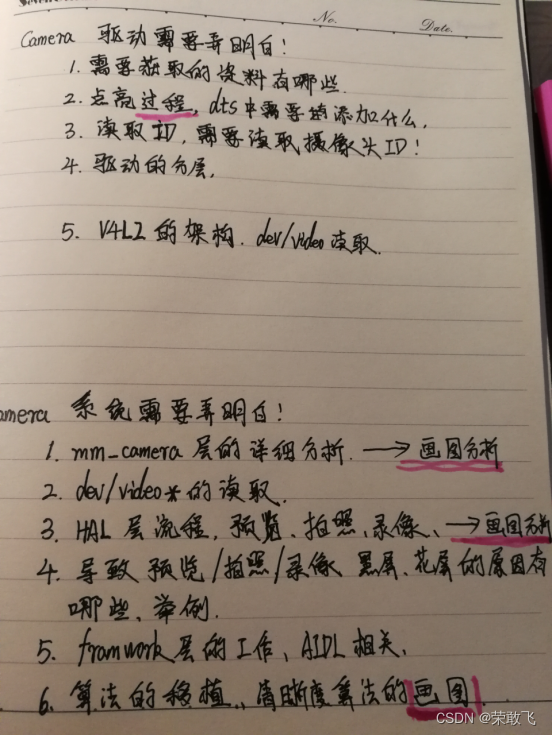 No.
Date.
Camera 驱动需要弄明白!
1. 需要获取的资料有哪些.
2. 点亮过程, dts中需要添加什么.
3. 读取ID, 需要读取摄像头ID!
4. 驱动的分层.
5. V4L2 的架构. dev/video 读取.
amera 系统需要弄明白!
1. mm_camera 层的详细分析. → 画图分析
2. dev/video* 的读取.
3. HAL 层流程, 预览、拍照、录像、→ 画图分析
4. 导致 预览/拍照/录像 黑屏、花屏的原因有
哪些、举例.
5. framwork 层的工作、AIDL 相关.
6. 算法的移植、清晰度算法的画图.
CSDN @荣敢飞